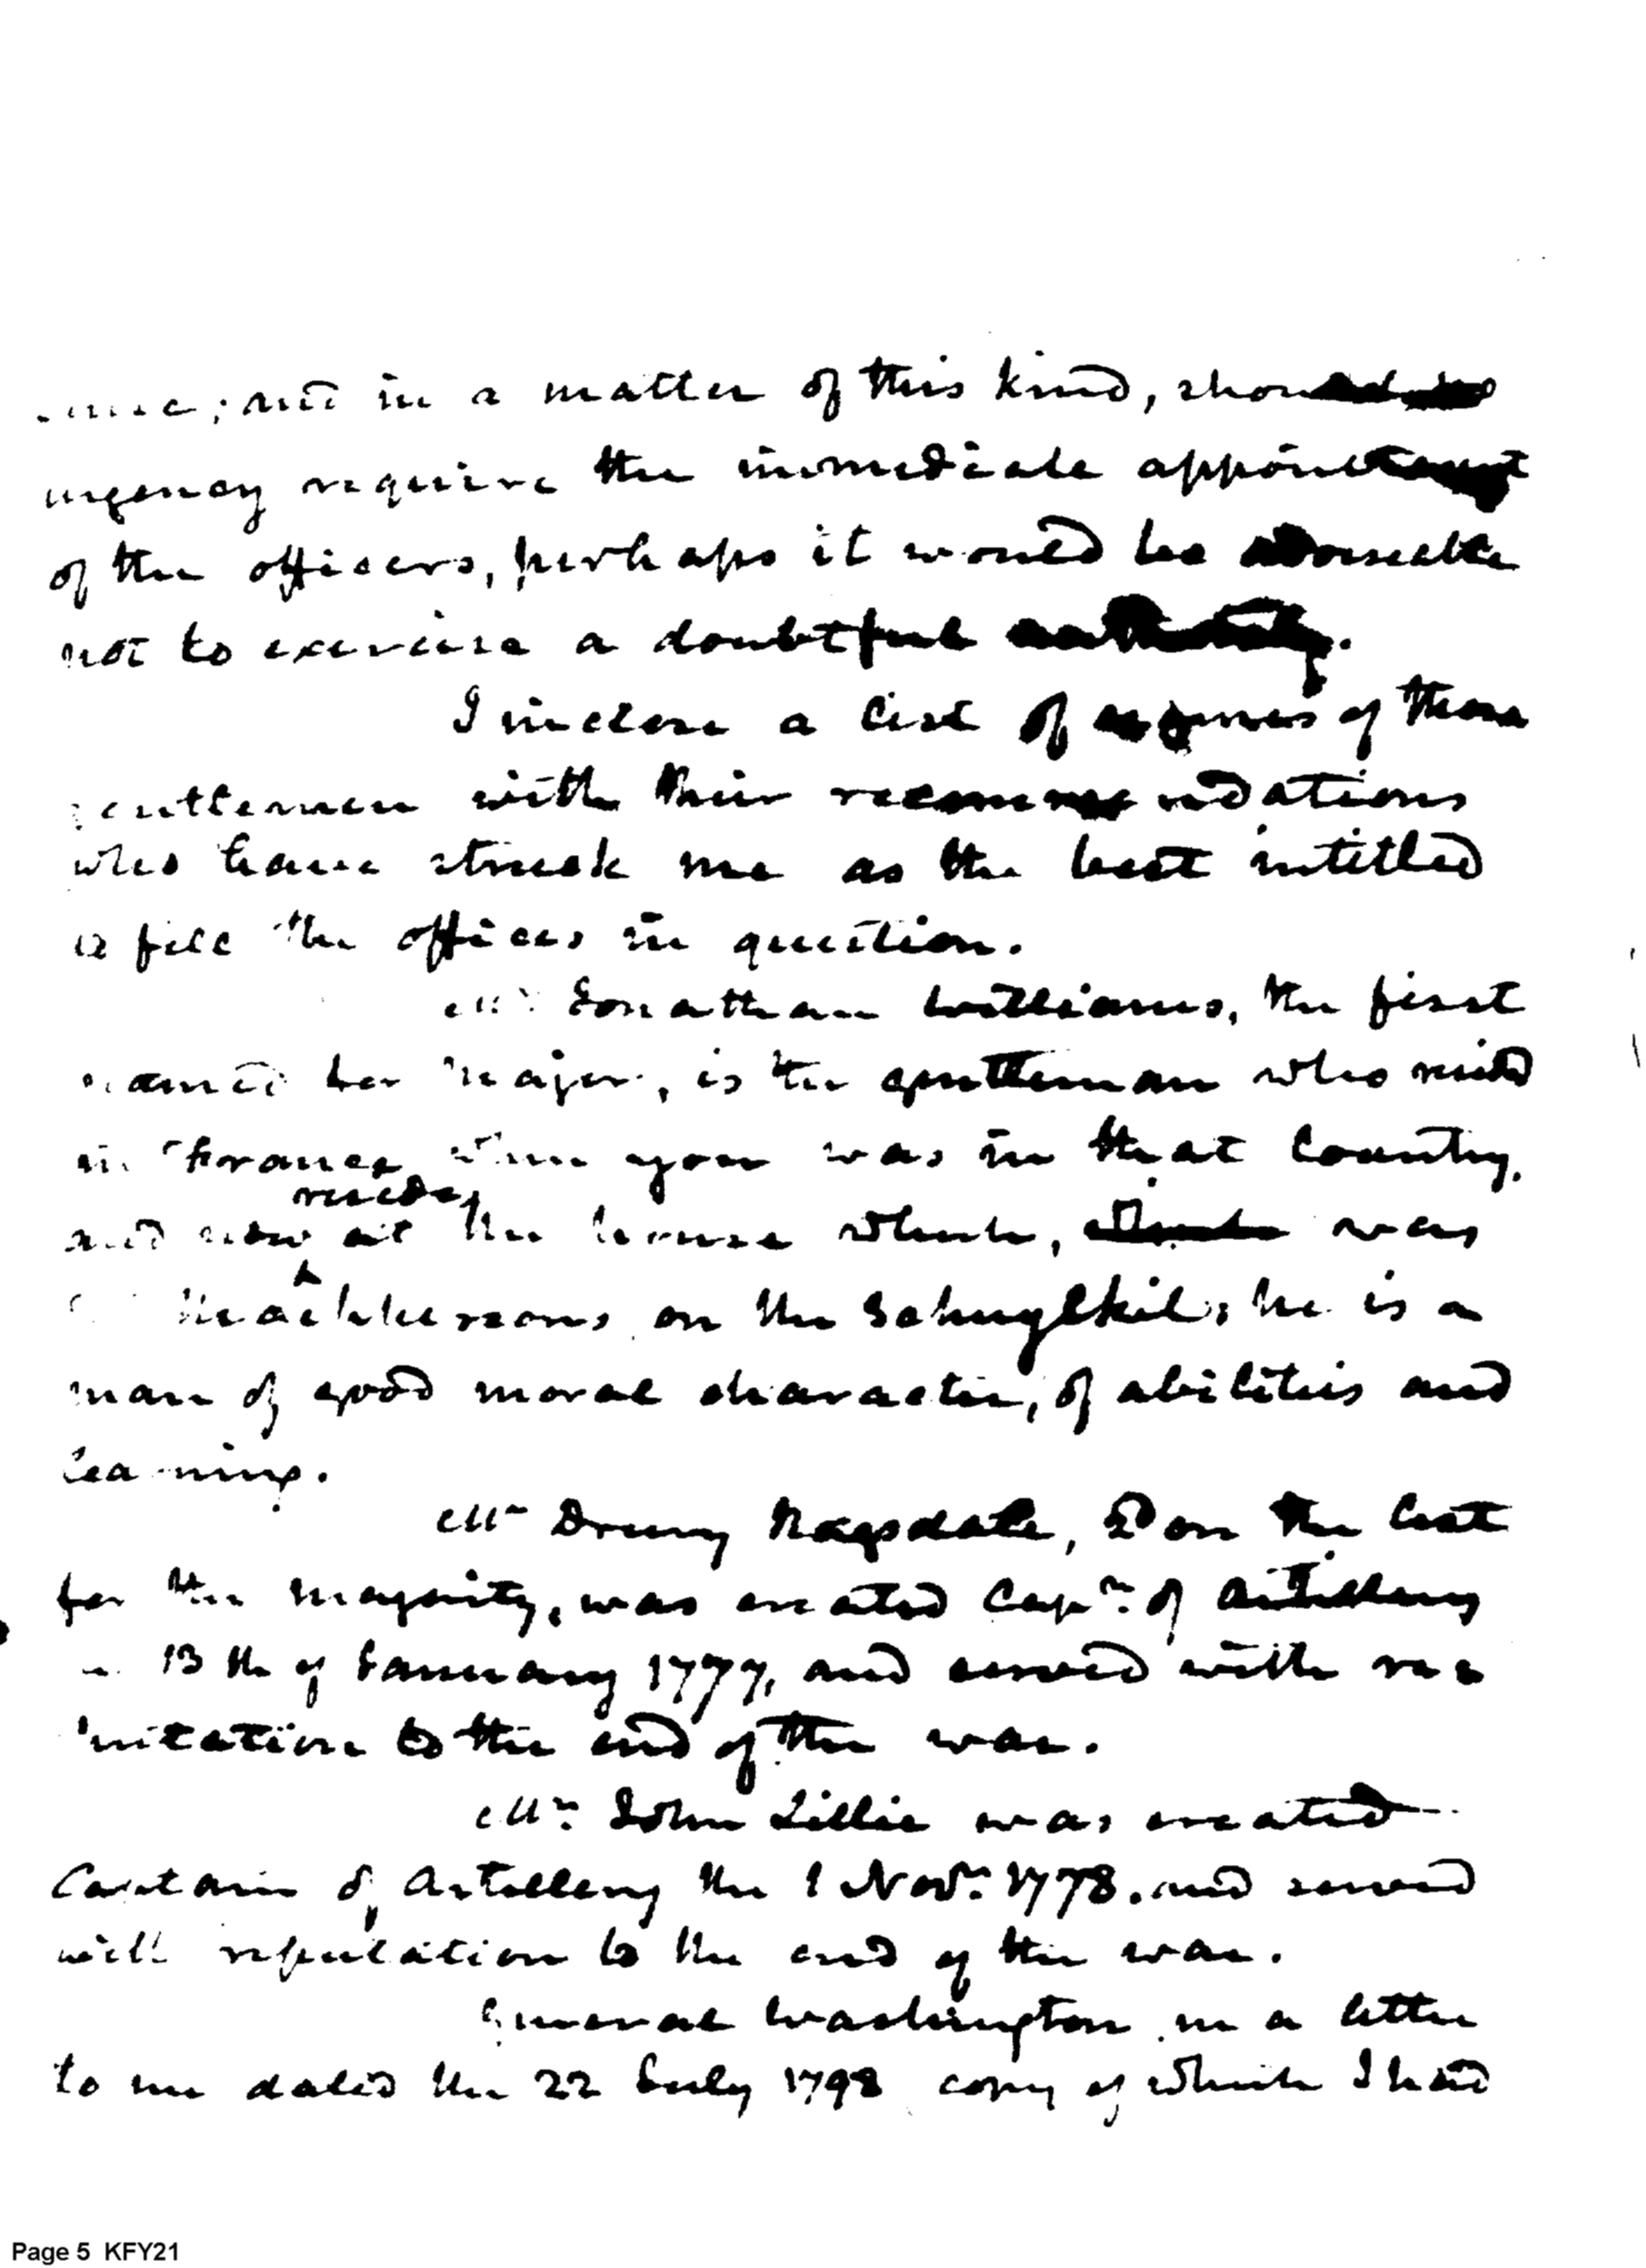 ; and in a matter of this kind, should no
urgency require the immediate appointment
of the officers, perhaps it would be adviseable
not to exercise a doubtful authority.
I inclose a list of names of those
gentlemen with their recommendations
who have struck me as the best intitled
to fill the offices in question.
Mr. Jonathan Williams, the first
named for Major, is the gentleman who resided
in France when you was in that Country,
resides
and now at the house which, which was
Mackphersons on the Schuylkil; he is a
man of good moral character, of abilities and
learning.
Mr Drury Ragsdale, 2d on the list
for the majority, was created Capn. of Artillery
13th of January 1777, and served with re=
putation to the end of the war.
Mr. John Lillie was created
Captain of Artillery the 1 Novr. 1778. and served
with reputation to the end of the war.
General Washington in a letter
to me dated the 22 July 1798 copy of which I had
Page 5 KFY21